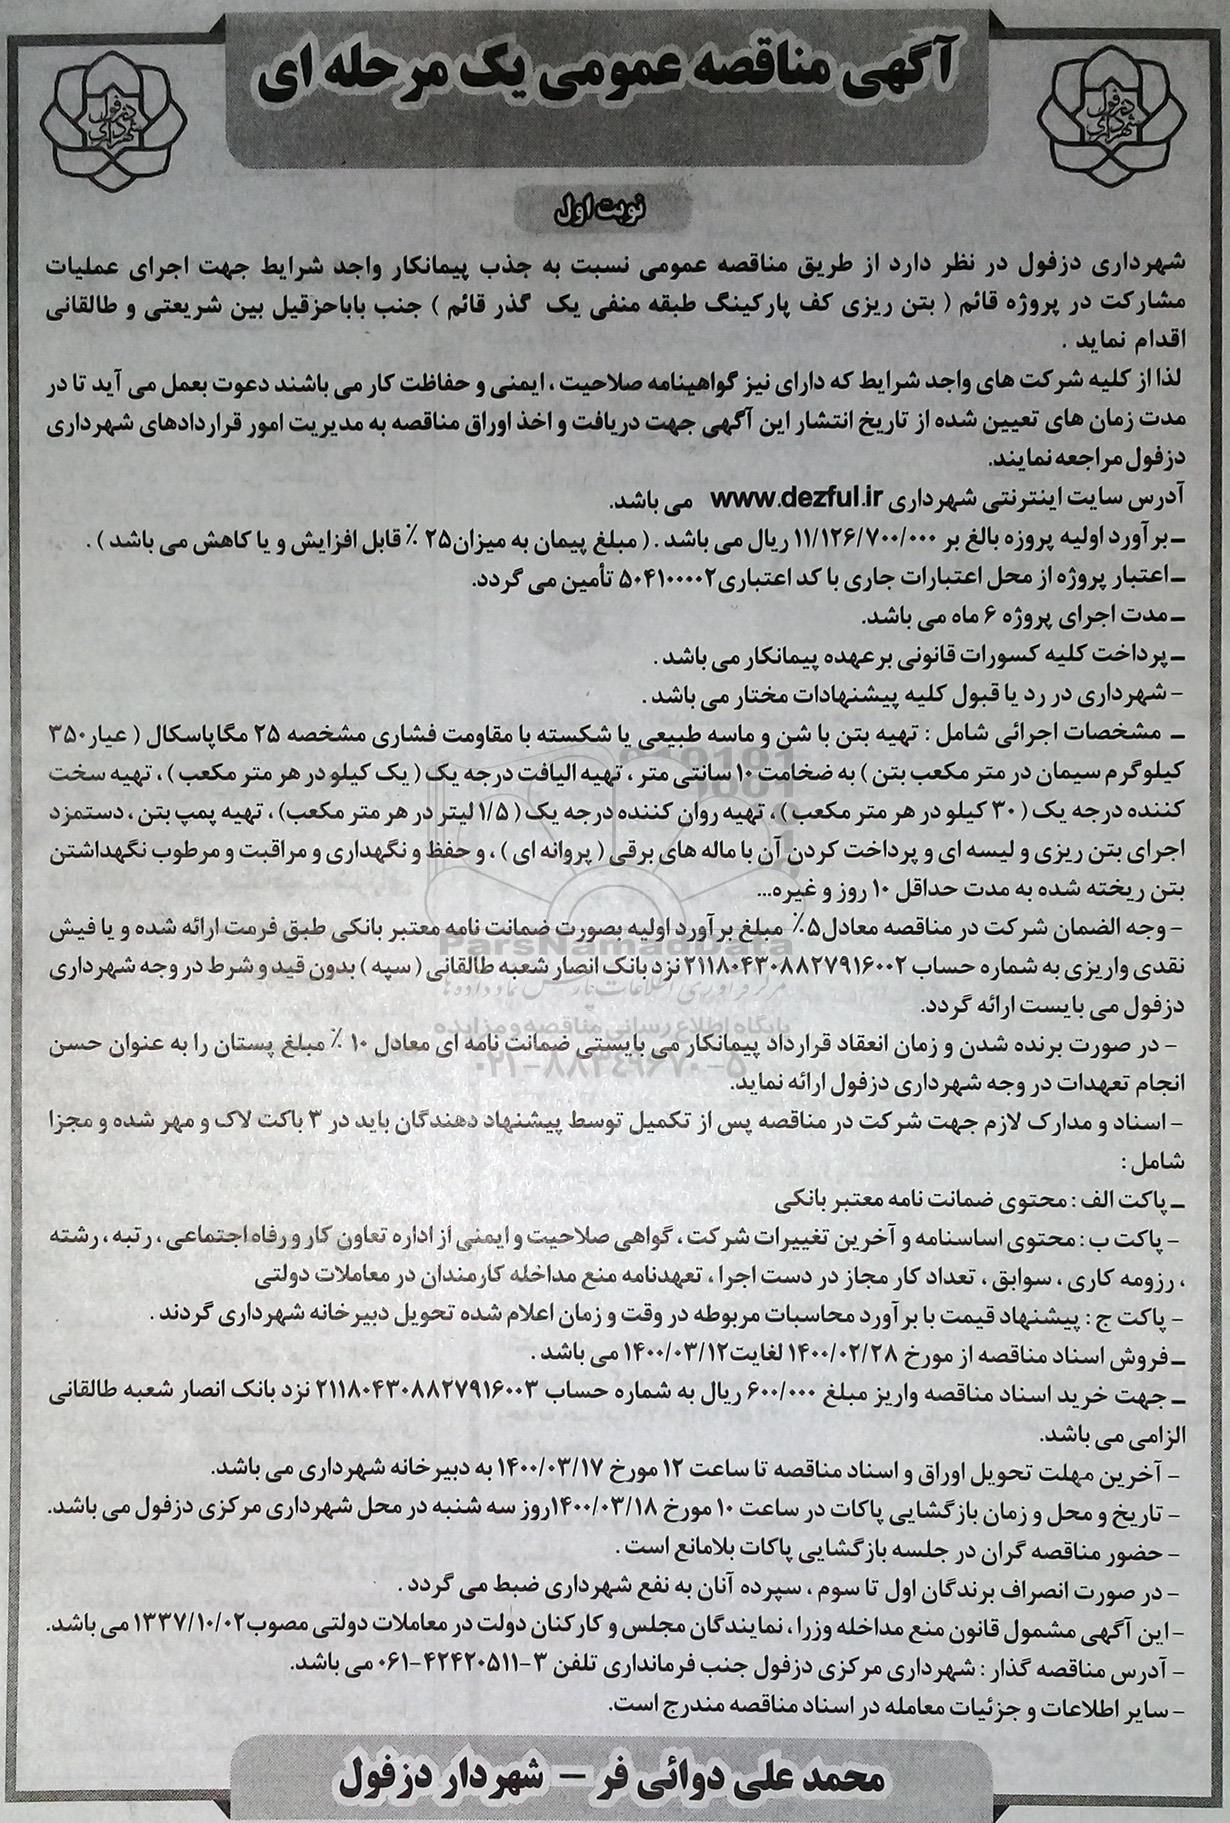 آگهی مناقصه عمومی یک مرحله ای
شهرداری دزفول
شهرداری دزفول
نوبت اول
شهرداری دزفول در نظر دارد از طریق مناقصه عمومی نسبت به جذب پیمانکار واجد شرایط جهت اجرای عملیات
مشارکت در پروژه قائم ( بتن ریزی کف پارکینگ طبقه منفی یک گذر قائم ) جنب باباحزقیل بین شریعتی و طالقانی
اقدام نماید .
لذا از کلیه شرکت های واجد شرایط که دارای نیز گواهینامه صلاحیت ، ایمنی و حفاظت کار می باشند دعوت بعمل می آید تا در
مدت زمان های تعیین شده از تاریخ انتشار این آگهی جهت دریافت و اخذ اوراق مناقصه به مدیریت امور قراردادهای شهرداری
دزفول مراجعه نمایند.
آدرس سایت اینترنتی شهرداری www.dezful.ir می باشد.
ـ برآورد اولیه پروزه بالغ بر ۱۱/۱۲۶/۷۰۰/۰۰۰ ریال می باشد . ( مبلغ پیمان به میزان۲۵ ٪ قابل افزایش و یا کاهش می باشد ) .
ـ اعتبار پروژه از محل اعتبارات جاری با کد اعتباری۵۰۴۱۰۰۰۰۲ تأمین می گردد.
ـ مدت اجرای پروژه ۶ ماه می باشد.
ـ پرداخت کلیه کسورات قانونی برعهده پیمانکار می باشد .
- شهرداری در رد یا قبول کلیه پیشنهادات مختار می باشد .
ـ مشخصات اجرائی شامل : تهیه بتن با شن و ماسه طبیعی یا شکسته با مقاومت فشاری مشخصه ۲۵ مگاپاسکال ( عیار۳۵۰
کیلوگرم سیمان در متر مکعب بتن ) به ضخامت ۱۰ سانتی متر ، تهیه الیافت درجه یک ( یک کیلو در هر متر مکعب ) ، تهیه سخت
کننده درجه یک ( ۳۰ کیلو در هر متر مکعب ) ، تهیه روان کننده درجه یک ( ۱/۵ لیتر در هر متر مکعب) ، تهیه پمپ بتن ، دستمزد
اجرای بتن ریزی و لیسه ای و پرداخت کردن آن با ماله های برقی ( پروانه ای ) ، و حفظ و نگهداری و مراقبت و مرطوب نگهداشتن
بتن ریخته شده به مدت حداقل ۱۰ روز و غیره...
- وجه الضمان شرکت در مناقصه معادل۵٪ مبلغ برآورد اولیه بصورت ضمانت نامه معتبر بانکی طبق فرمت ارائه شده و یا فیش
نقدی واریزی به شماره حساب ۲۱۱۸۰۴۳۰۸۸۲۷۹۱۶۰۰۲ نزد بانک انصار شعبه طالقانی ( سپه ) بدون قید و شرط در وجه شهرداری
دزفول می بایست ارائه گردد.
ParsNamadData
مرکز فرآوری اطلاعات پارس نماد داده ها
پایگاه اطلاع رسانی مناقصه و مزایده
۰۲۱-۸۸۳۴۹۶۷۰-۵
- در صورت برنده شدن و زمان انعقاد قرارداد پیمانکار می بایستی ضمانت نامه ای معادل ۱۰ ٪ مبلغ پستان را به عنوان حسن
انجام تعهدات در وجه شهرداری دزفول ارائه نماید.
- اسناد و مدارک لازم جهت شرکت در مناقصه پس از تکمیل توسط پیشنهاد دهندگان باید در ۳ باکت لاک و مهر شده و مجزا
شامل :
ـ پاکت الف : محتوی ضمانت نامه معتبر بانکی
- پاکت ب : محتوی اساسنامه و آخرین تغییرات شرکت ، گواهی صلاحیت و ایمنی از اداره تعاون کار و رفاه اجتماعی ، رتبه ، رشته
، رزومه کاری ، سوابق ، تعداد کار مجاز در دست اجرا ، تعهدنامه منع مداخله کارمندان در معاملات دولتی
- پاکت ج : پیشنهاد قیمت با برآورد محاسبات مربوطه در وقت و زمان اعلام شده تحویل دبیرخانه شهرداری گردند .
ـ فروش اسناد مناقصه از مورخ ۱۴۰۰/۰۲/۲۸ لغایت۱۴۰۰/۰۳/۱۲ می باشد .
ـ جهت خرید اسناد مناقصه واریز مبلغ ۶۰۰/۰۰۰ ریال به شماره حساب ۲۱۱۸۰۴۳۰۸۸۲۷۹۱۶۰۰۳ نزد بانک انصار شعبه طالقانی
الزامی می باشد.
- آخرین مهلت تحویل اوراق و اسناد مناقصه تا ساعت ۱۲ مورخ ۱۴۰۰/۰۳/۱۷ به دبیرخانه شهرداری می باشد.
- تاریخ و محل و زمان بازگشایی پاکات در ساعت ۱۰ مورخ ۱۴۰۰/۰۳/۱۸روز سه شنبه در محل شهرداری مرکزی دزفول می باشد.
- حضور مناقصه گران در جلسه بازگشایی پاکات بلامانع است .
- در صورت انصراف برندگان اول تا سوم ، سپرده آنان به نفع شهرداری ضبط می گردد .
- این آگهی مشمول قانون منع مداخله وزرا ، نمایندگان مجلس و کارکنان دولت در معاملات دولتی مصوب۱۳۳۷/۱۰/۰۲ می باشد.
- آدرس مناقصه گذار : شهرداری مرکزی دزفول جنب فرمانداری تلفن ۳-۴۲۴۲۰۵۱۱-۰۶۱ می باشد.
- سایر اطلاعات و جزئیات معامله در اسناد مناقصه مندرج است.
محمد علی دوائی فر – شهردار دزفول